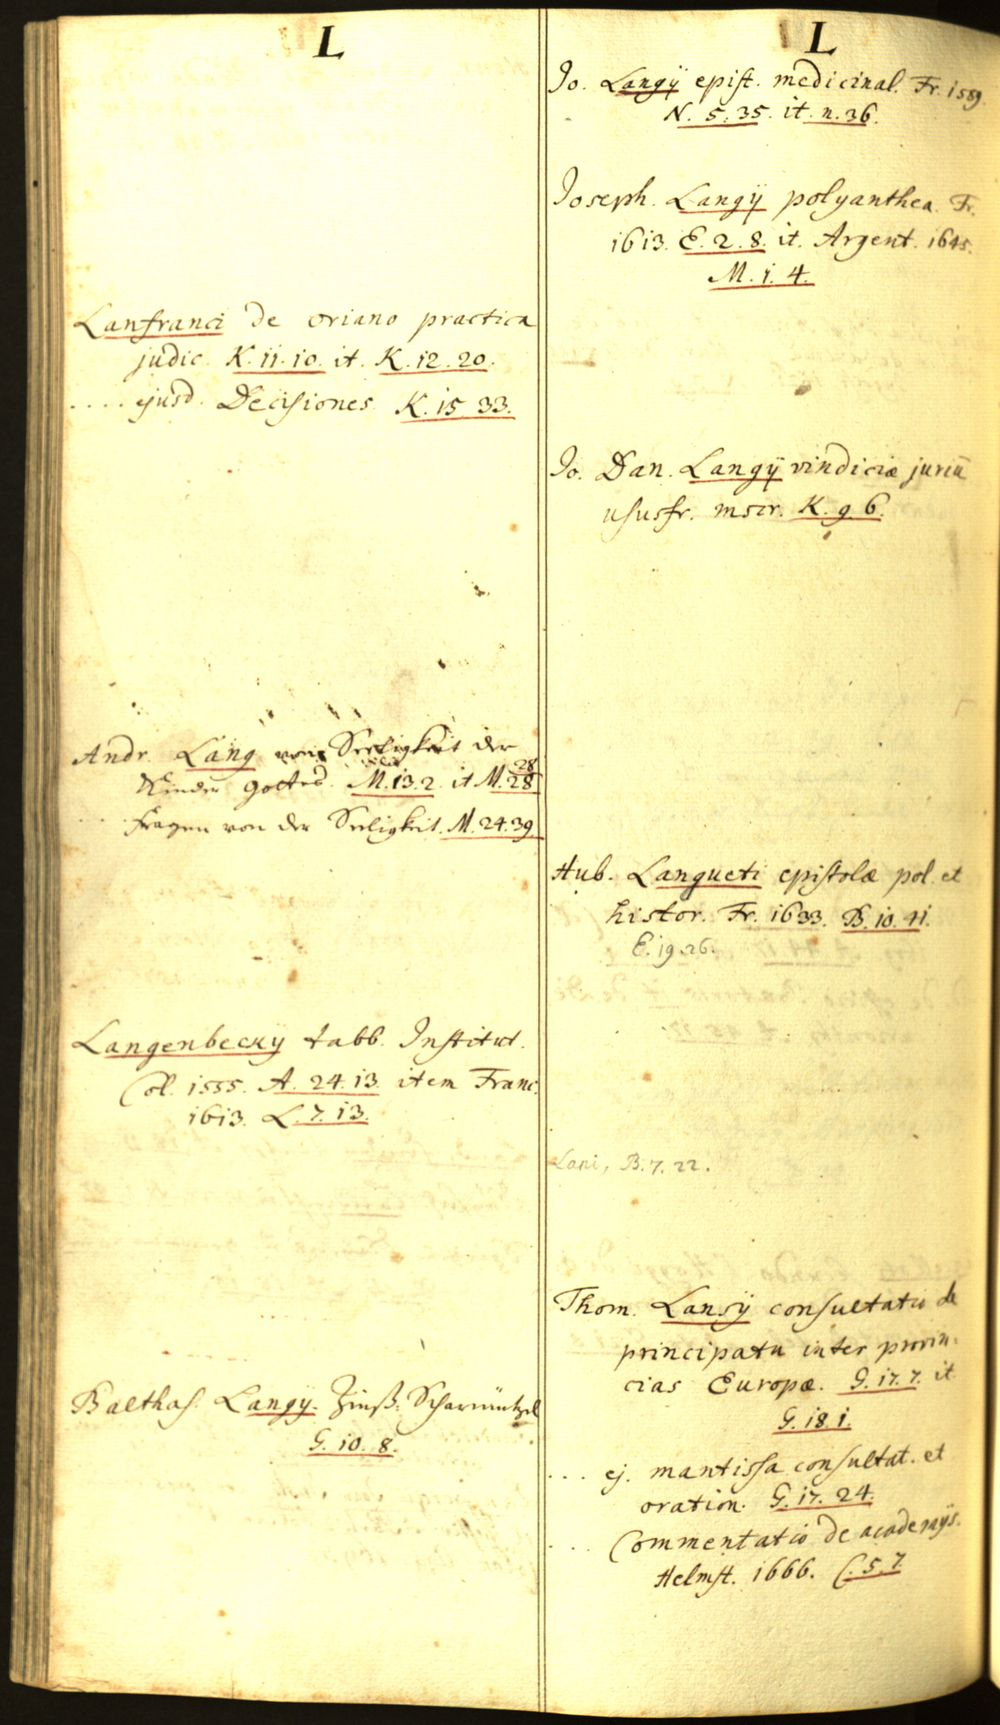 L
Lanfranci de Oriano practica
judic. K. 11. 10. it. K. 12. 20.
.... ejusd. Decisiones K. 15. 33.
Andr. Lang von Seeligkeit der
Kinder Gottes. M. 13. 2. it M. 28
28
Fragen von der Seeligkeit. M. 24. 39
Langenbeckÿ tabb. Institut.
Col. 1555. A. 24. 13. item Franc.
1613. L. 7. 13.
Balthas. Langÿ. Zinß-Scharmützel
G. 10. 8.
L
Jo. Langÿ epist. medicinal. Fr. 1589.
N. 5. 35. it. n. 36.
Joseph. Langÿ polyanthea. Fr.
1613. E. 2. 8. it. Argent. 1645.
M. 1. 4.
Jo. Dan. Langÿ vindiciæ juriū
ususfr. mscr. K. 9. 6.
Hub. Langueti epistolæ pol. et
histor. Fr. 1633. B. 10. 41.
E. 19. 26.
Lani, B. 7. 22.
Thom. Lansÿ consultatio de
principatu inter provin-
cias Europæ. G. 17. 7. it
G. 18. 1.
... ej. mantissa consultat. et
oration. G. 17. 24.
... Commentatio de academÿs.
Helmst. 1666. C. 5. 7.